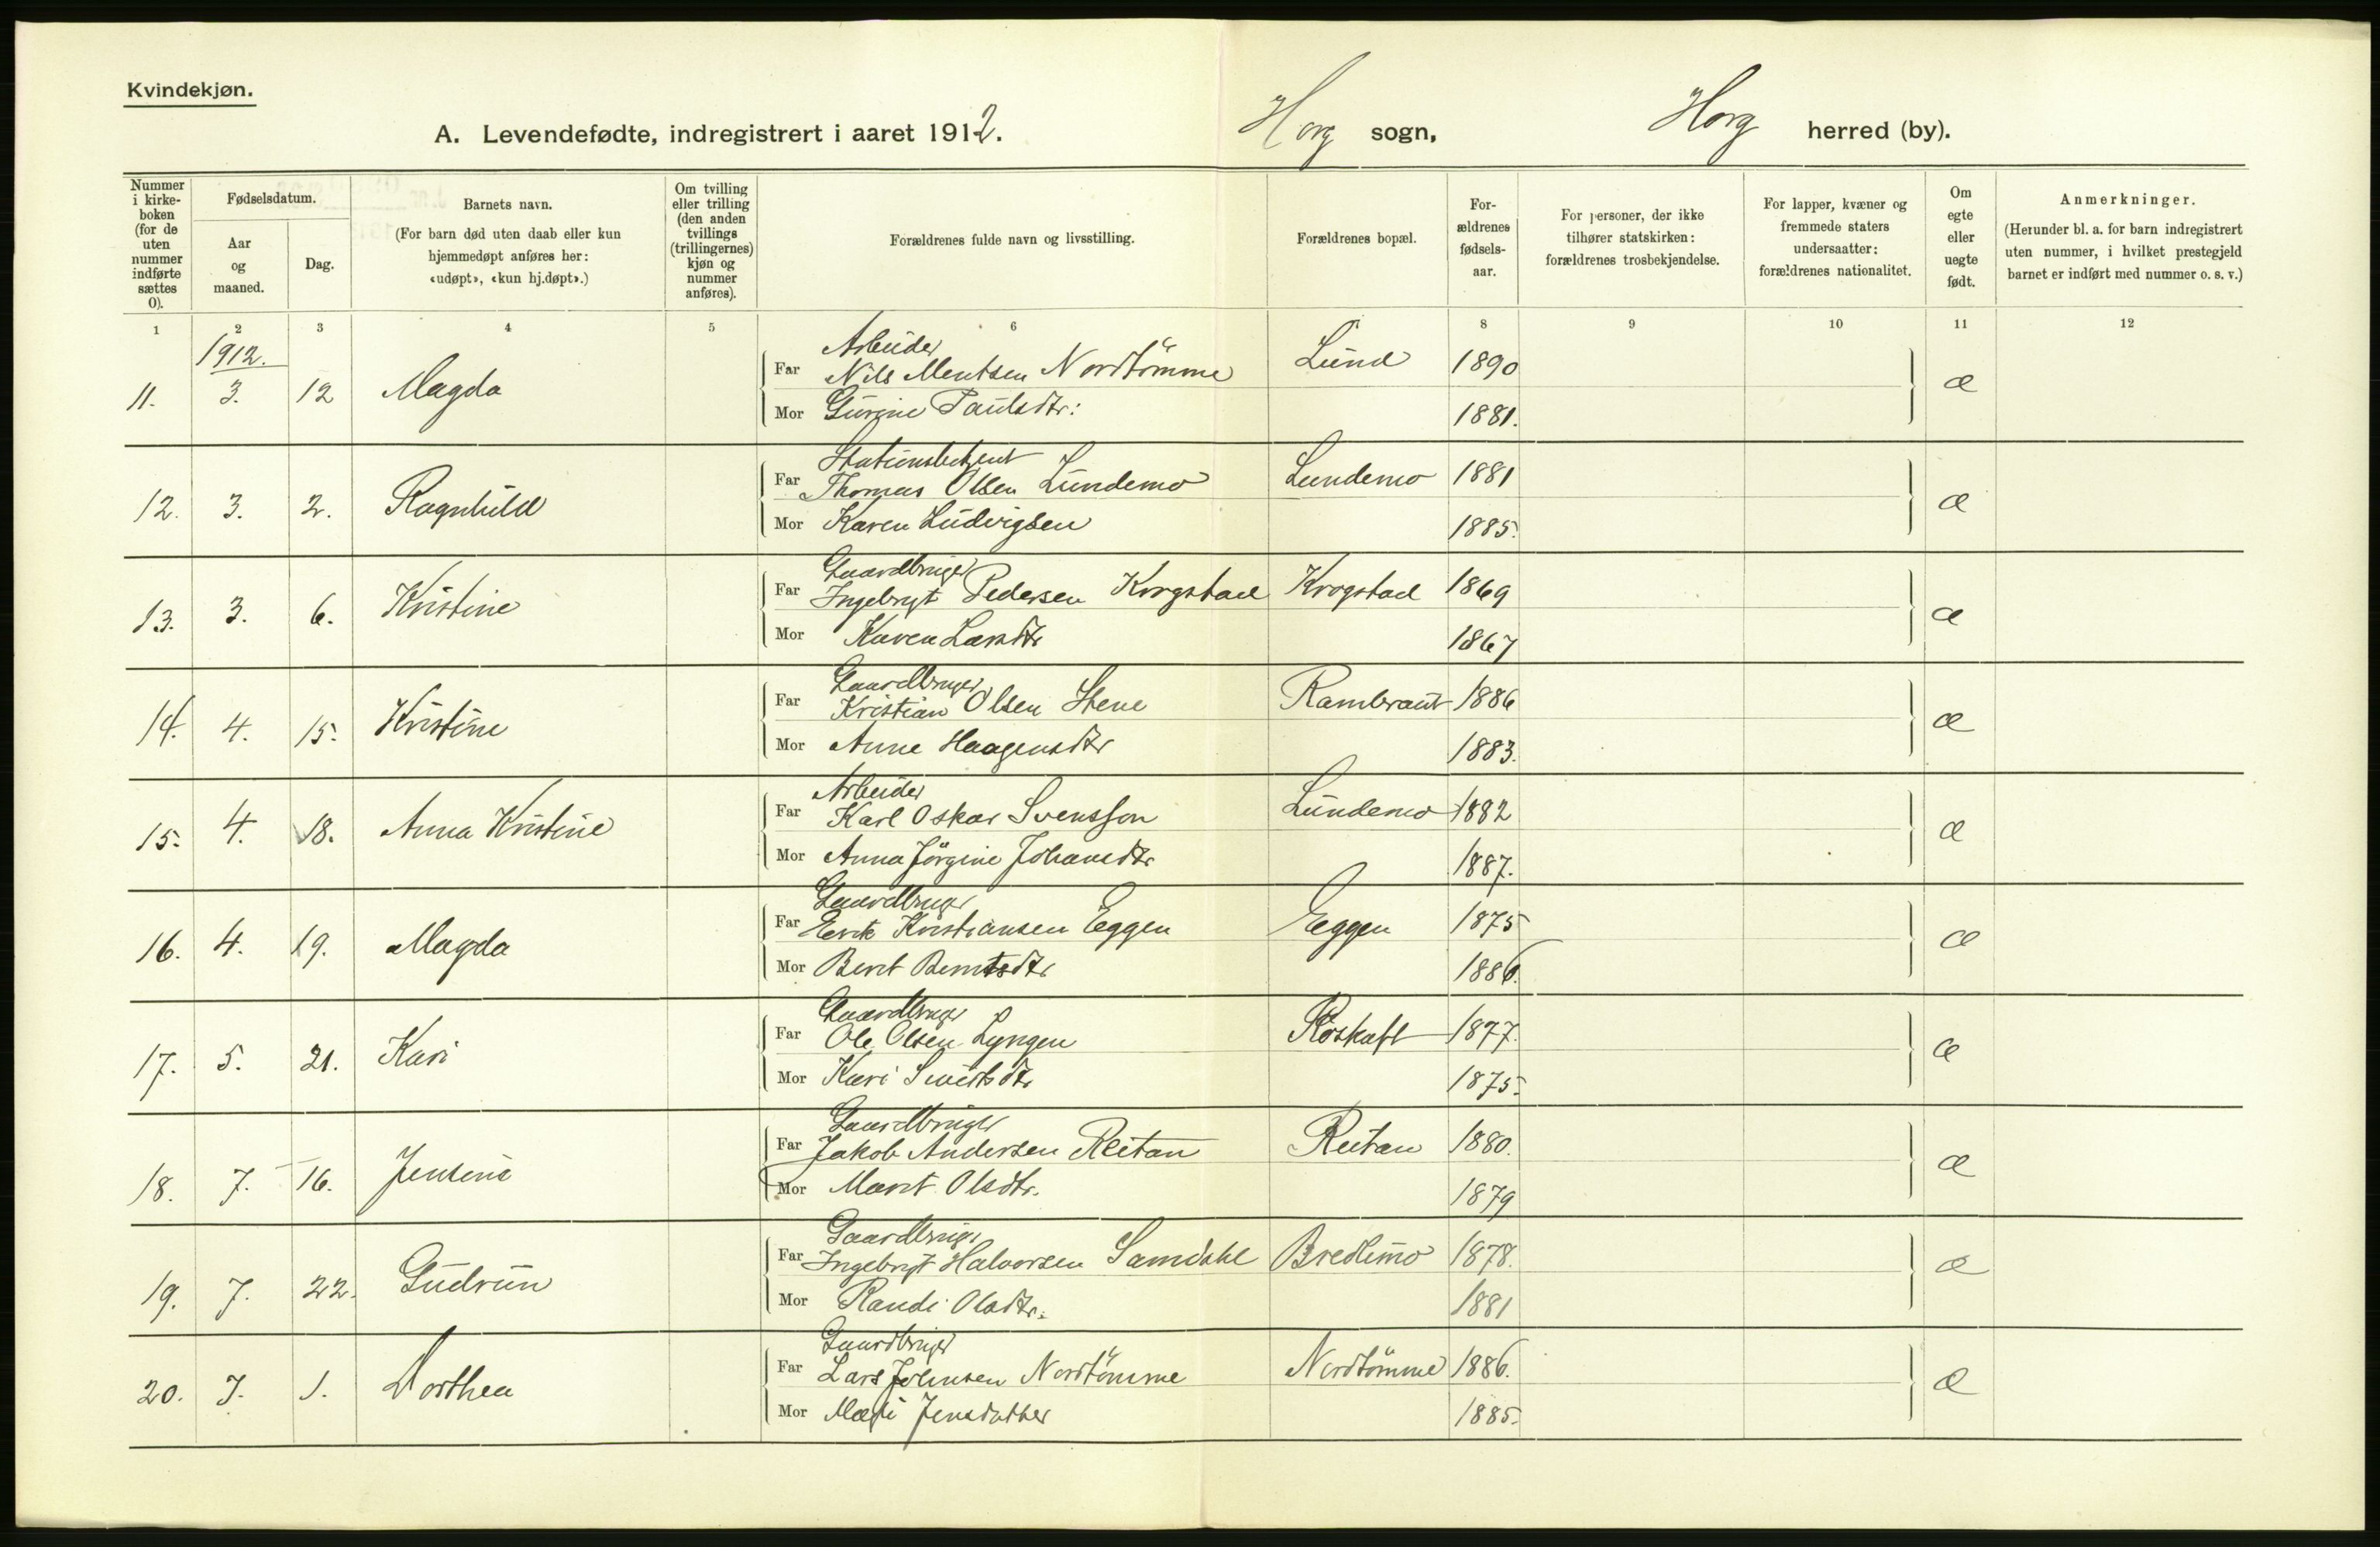 Kvindekjøn.
A. Levendefødte, indregistrert i aaret 1912. Horg sogn, Horg herred (by).
Nummer i kirke-boken (for de uten nummer indførte sættes 0).
Fødselsdatum.
Aar og maaned.
Dag.
Barnets navn.
(For barn død uten daab eller kun hjemmedøpt anføres her: «udøpt», «kun hj.døpt».)
Om tvilling eller trilling (den anden tvillings (trillingernes) kjøn og nummer anføres).
Forældrenes fulde navn og livsstilling.
Forældrenes bopæl.
For-ældrenes fødsels-aar.
For personer, der ikke tilhører statskirken: forældrenes trosbekjendelse.
For lapper, kvæner og fremmede staters undersaatter: forældrenes nationalitet.
Om egte eller uegte født.
Anmerkninger.
(Herunder bl. a. for barn indregistrert uten nummer, i hvilket prestegjeld barnet er indført med nummer o. s. v.)
1 2 3 4 5 6 7 8 9 10 11 12
1912.
Arbeider
11. 3. 12 Magda Far Nils Mentsen Nordtömme Lund 1890 æ
Mor Gurine Paulsdtr: 1881.
Stationsbetjent
12. 3. 2. Ragnhild Far Thomas Olsen Lundemo Lundemo 1881 æ
Mor Karen Ludvigsen 1885.
Gaardbruger
13. 3. 6. Kristine Far Ingebrigt Pedersen Krogstad Krogstad 1869 æ
Mor Karen Larsdtr 1867
Gaardbruger
14. 4. 15. Kristine Far Kristian Olsen Stene 1886 æ
Mor Anne Haagensdtr 1883.
Arbeider
15. 4. 18. Anna Kristine Far Karl Oskar Svensson Lundemo 1882 æ
Mor Anna Jörgine Johansdtr 1887.
Gaardbruger
16. 4. 19. Magda Far Eerik Kristiansen Eggen Eggen 1875 æ
Mor Berit Berntsdtr 1886.
Gaardbruger
17. 5. 21. Kari Far Ole Olsen Lyngen Röskaft 1877. æ
Mor Kari Sivertsdtr 1875.
Gaardbruger
18. 7. 16. Jensine Far Jakob Andersen Reitan Reitan 1880. æ
Mor Marit Olsdtr. 1879
Gaardbruger
19. 7. 22. Gudrun Far Ingebrigt Halvorsen Samdahl Bredlimo 1878. æ
Mor Randi Olsdtr. 1881
Gaardbruger
20. 7. 1. Dorthea Far Lars Johnsen Nordtömme Nordtömme 1886. æ
Mor Jensdatter 1885.